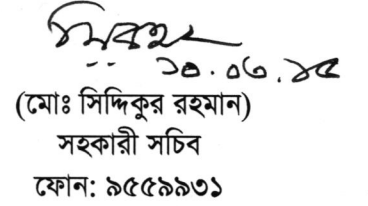 ১০.০৬.১৫
(মোঃ সিদ্দিকুর রহমান)
সহকারী সচিব
ফোন: ৯৫৫৯৯৩১